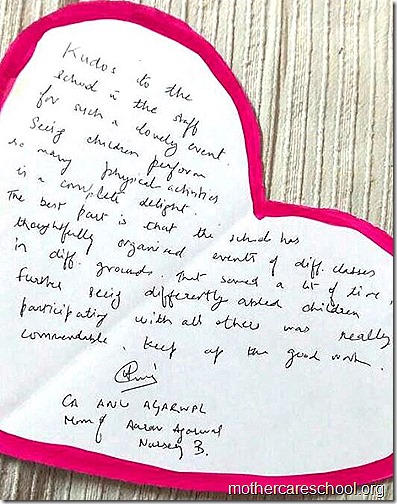 Kudos to the
school & the staff
for such a lovely event.
Seeing children perform
so many physical activities
is a complete delight.
The best part is that the school has
thoughtfully organised events of diff. classes
in diff. grounds. That saved a lot of time,
further seeing differently abled children
participating with all other was really
commendable. Keep up the good work.
CA ANU AGARWAL
Mom of Aarav Agarwal
Nursery B.
mothercareschool.org